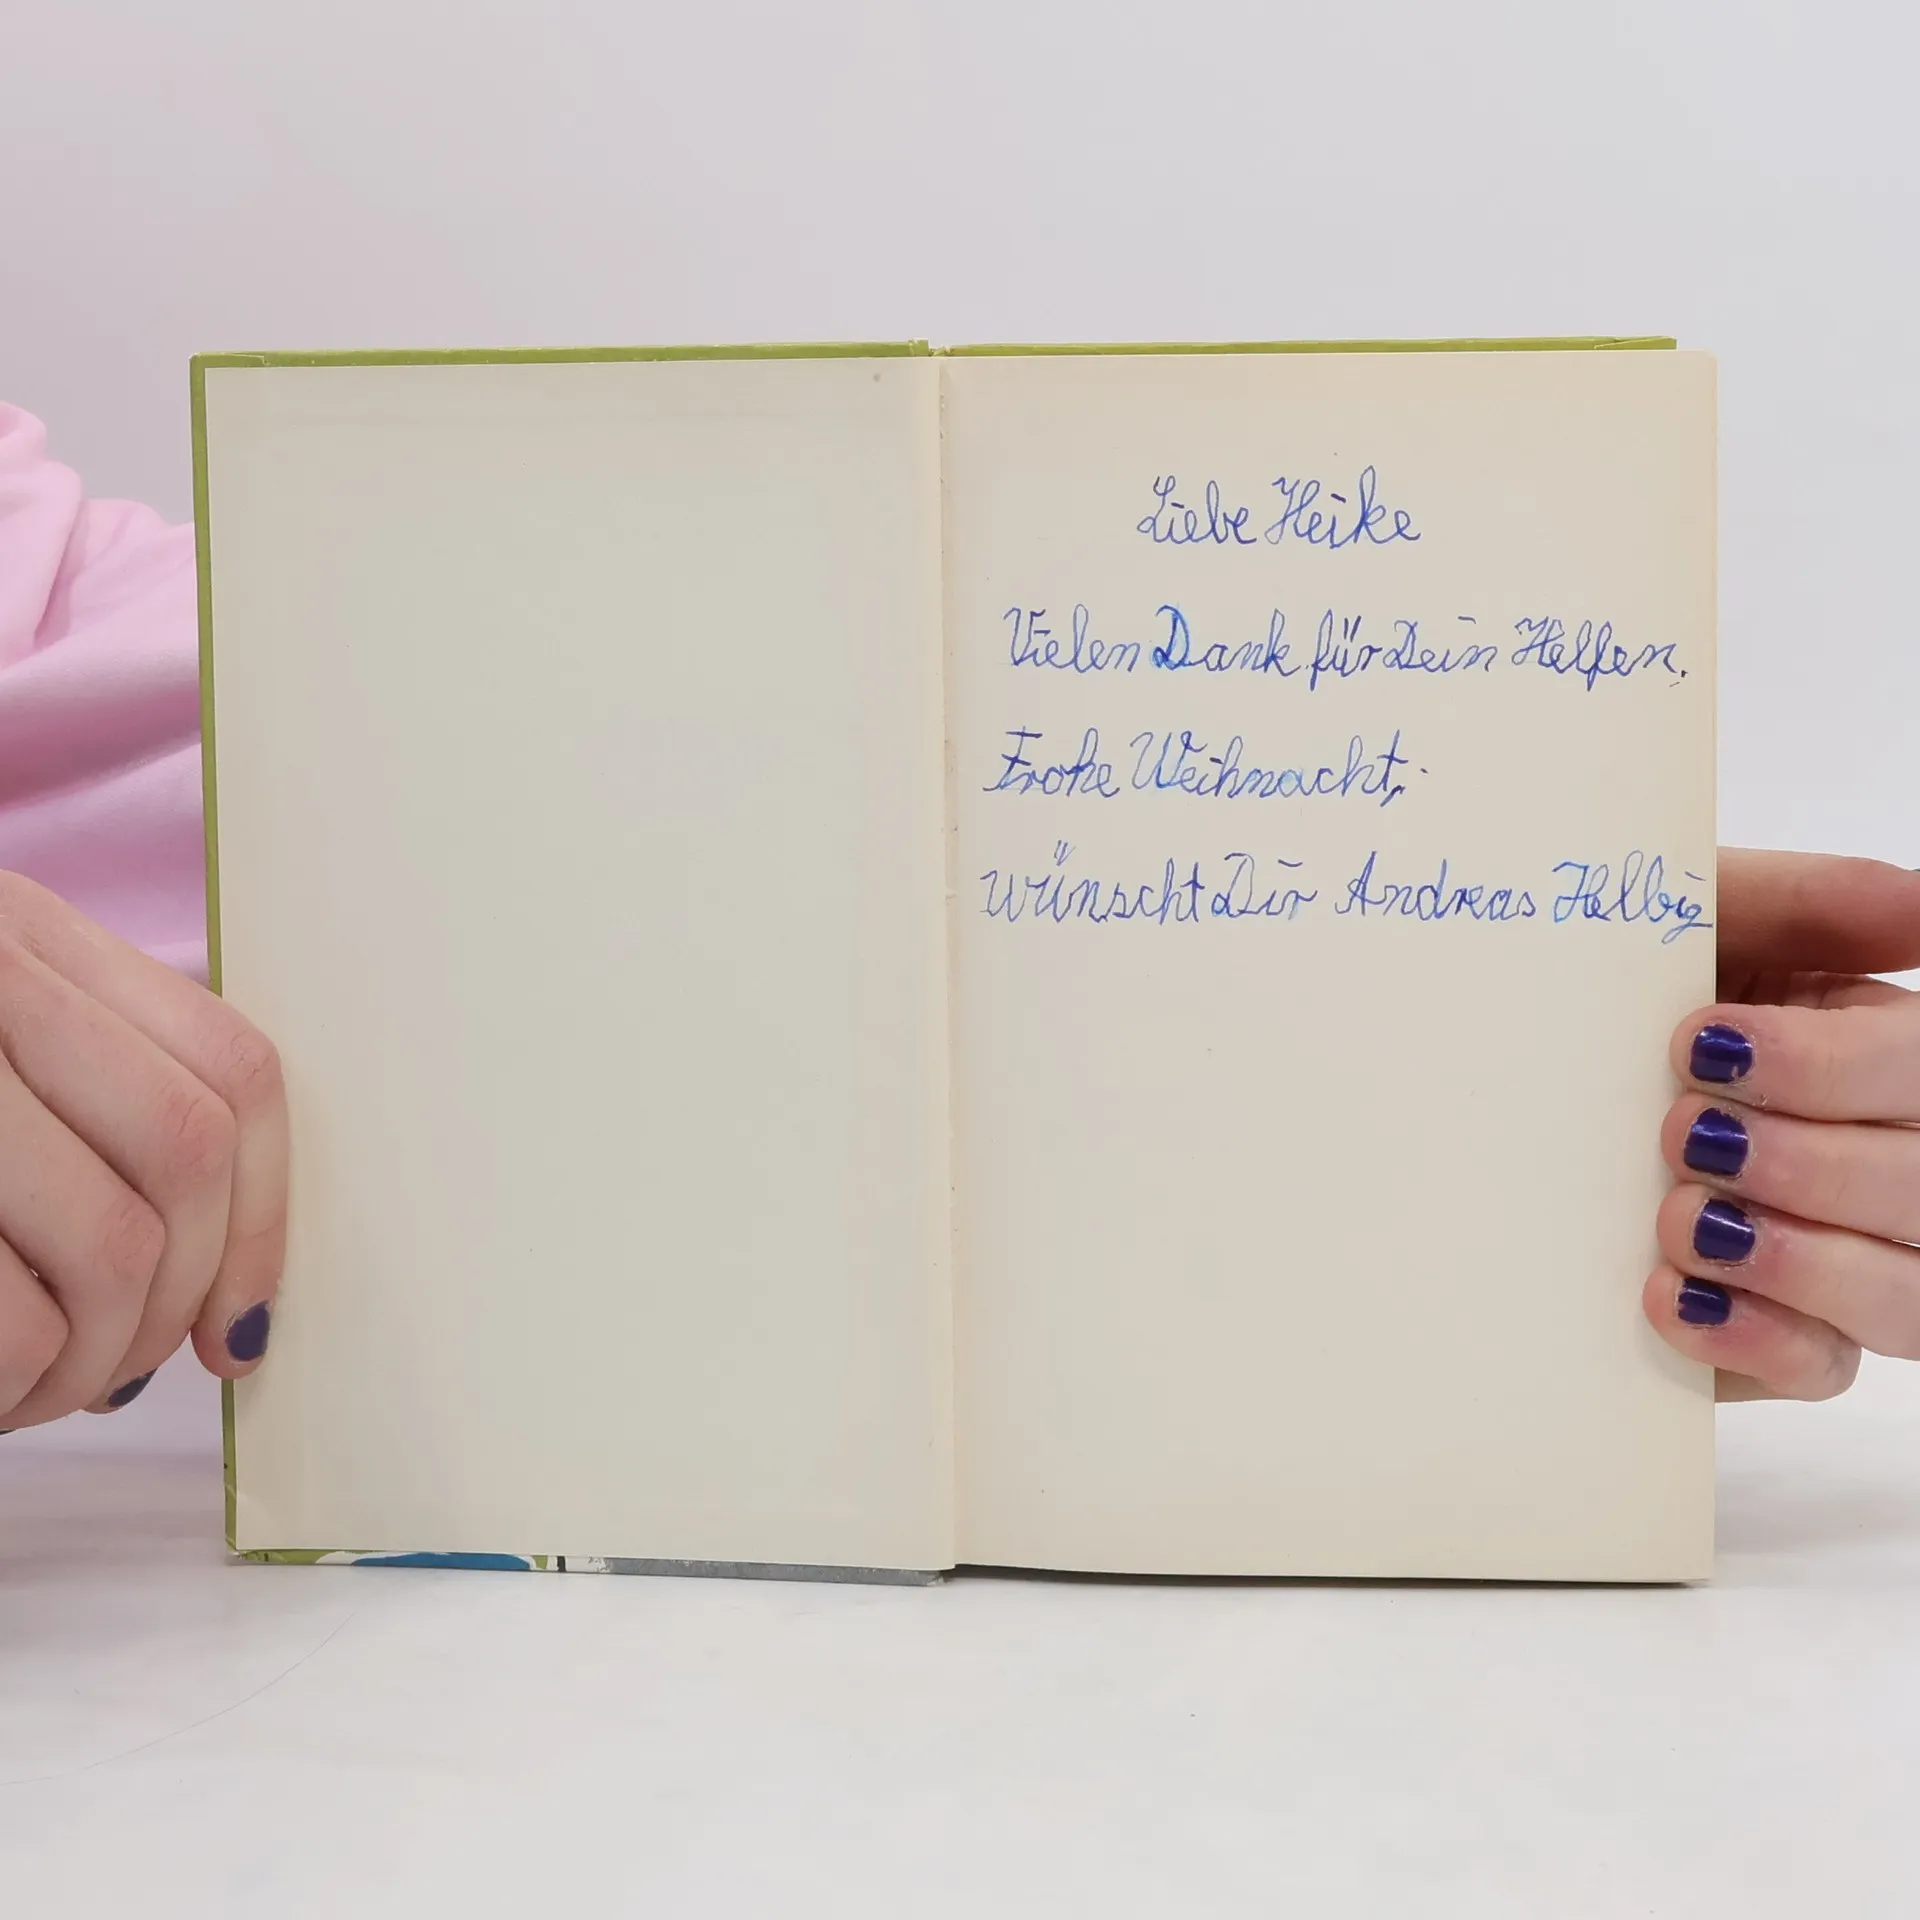 Liebe Heike
Vielen Dank für Dein Helfen.
Frohe Weihnacht,
wünscht Dir Andreas Helbig